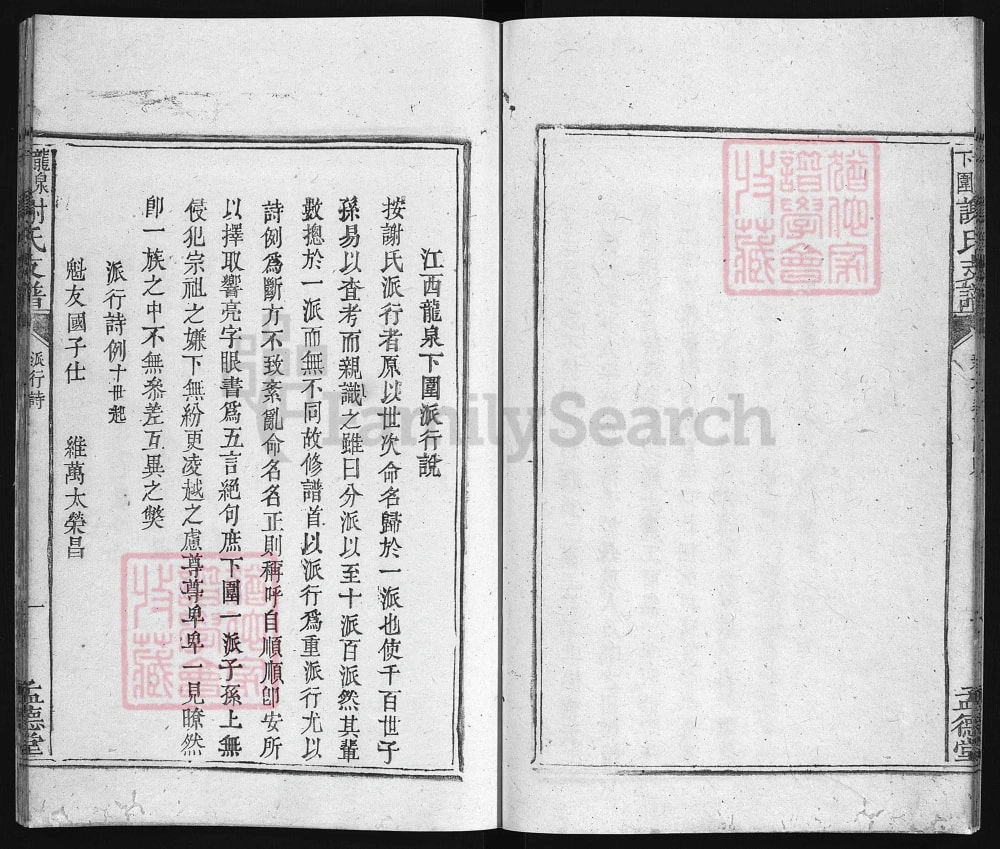 下圍謝氏支譜
孟德堂
猶他家
譜學會
收藏
江西龍泉下圍派行說
按謝氏派行者原以世次命名歸於一派也使千百世子
孫易以查考而親識之雖曰分派以至十派百派然其輩
數摠於一派而無不同故修譜首以派行爲重派行尤以
詩例爲斷方不致紊亂命名名正則稱呼自順順卽安所
以擇取響亮字眼書爲五言絕句庶下圍一派子孫上無
侵犯宗祖之嫌下無紛更凌越之慮尊尊卑卑一見瞭然
卽一族之中不無叅差互異之獘
派行詩例十世起
魁友國子仕 維萬太榮昌
龍泉謝氏支譜
派行詩
一
孟德堂
猶他家
譜學會
收藏
FamilySearch